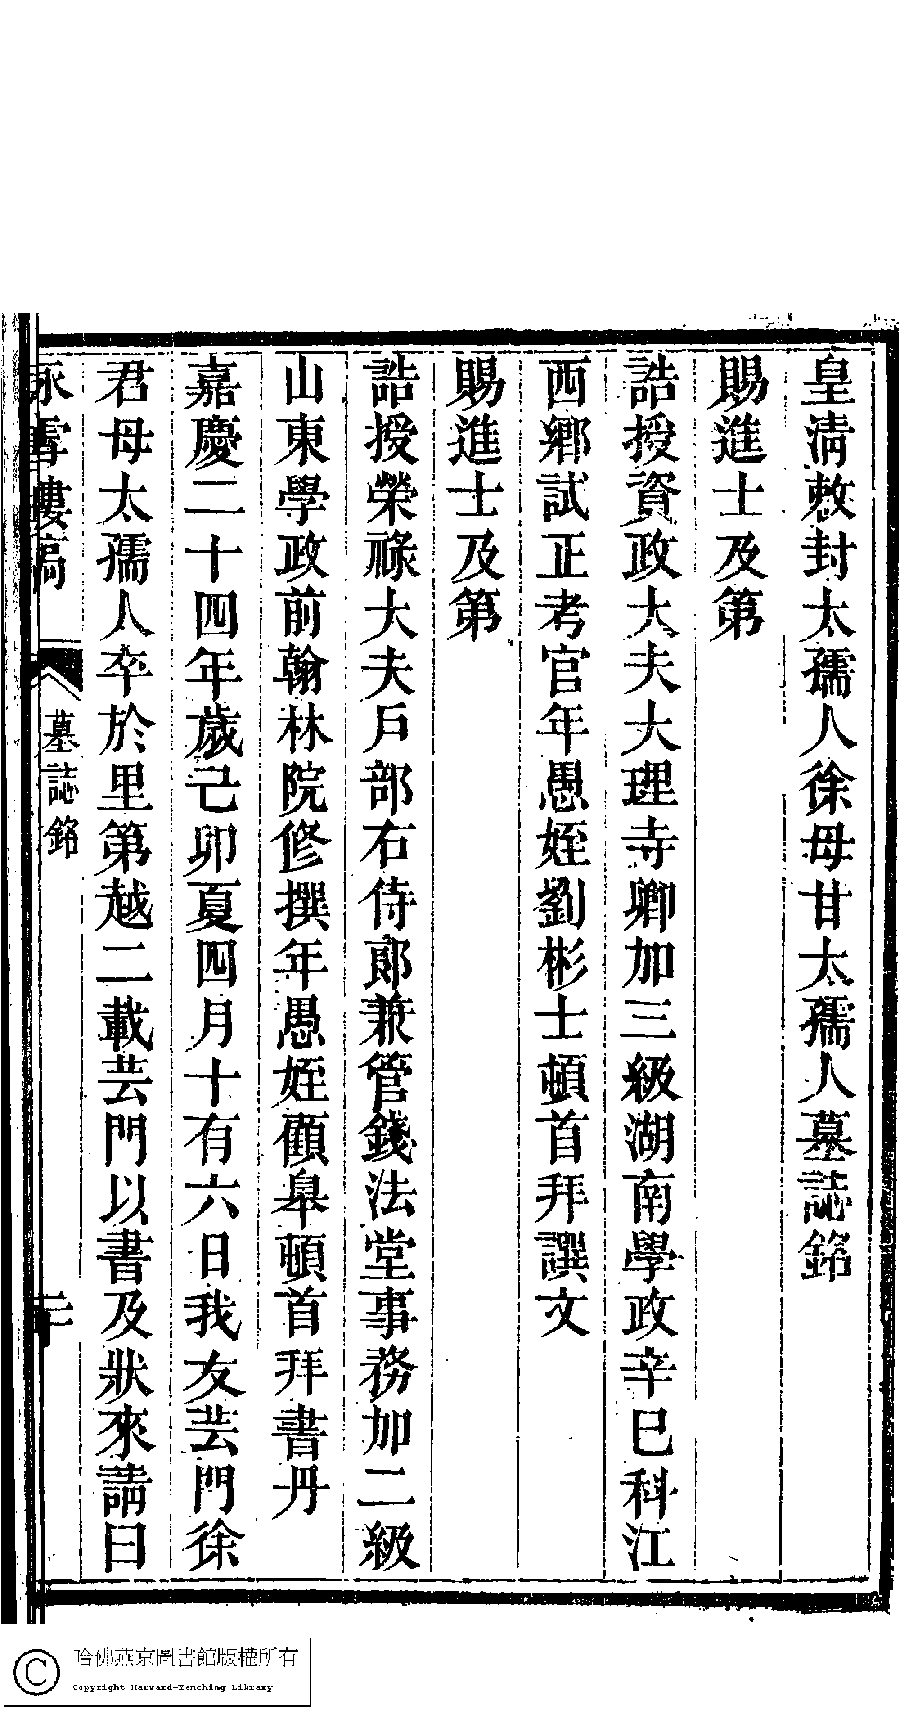 皇清敕封太孺人徐母甘太孺人墓誌銘
賜進士及第
誥授資政大夫大理寺卿加三級湖南學政辛巳科江
西鄉試正考官年愚姪劉彬士頓首拜譔文
賜進士及第
誥授榮祿大夫戶部右侍郎兼管錢法堂事務加二級
山東學政前翰林院修撰年愚姪顧皋頓首拜書丹
嘉慶二十四年歲己卯夏四月十有六日我友芸門徐
君母太孺人卒於里第越二載芸門以書及狀來請曰
雪樓稿 墓誌銘 二十
哈佛燕京圖書館版權所有
Copyright Harvard-Yenching Library